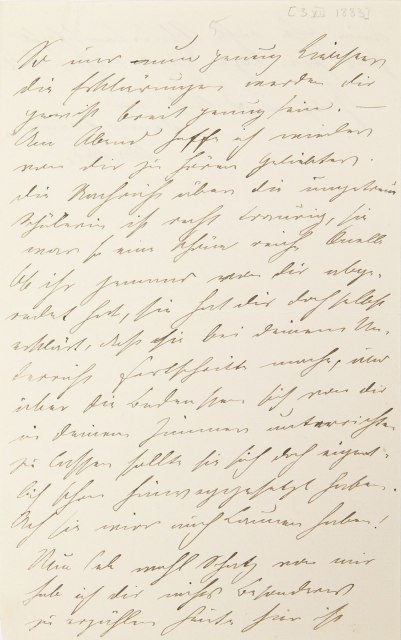 [3 XII 1883]
So nun genug Liebster,
die Erklärungen werden dir
gewiß breit genug sein. —
Am Abend hoffe ich wieder
von dir zu hören geliebter
die Nachricht über die ungetreue
Schülerin ist recht traurig, sie
war so eine schöne reiche Quelle
Ob ihr jemand von dir abge-
redet hat, sie hat dir doch selbst
erklärt, daß sie bei deinem Un-
terricht Fortschritte mache, und
über die Bedenken sich von dir
in deinem Zimmer unterrichten
zu lassen sollte sie sich doch eigent-
lich schon hinweggesetzt haben.
Ach sie wird auch Launen haben!
Nun leb wohl Schatz von mir
hab ich dir nichts besonderes
zu erzählen heute hier ist